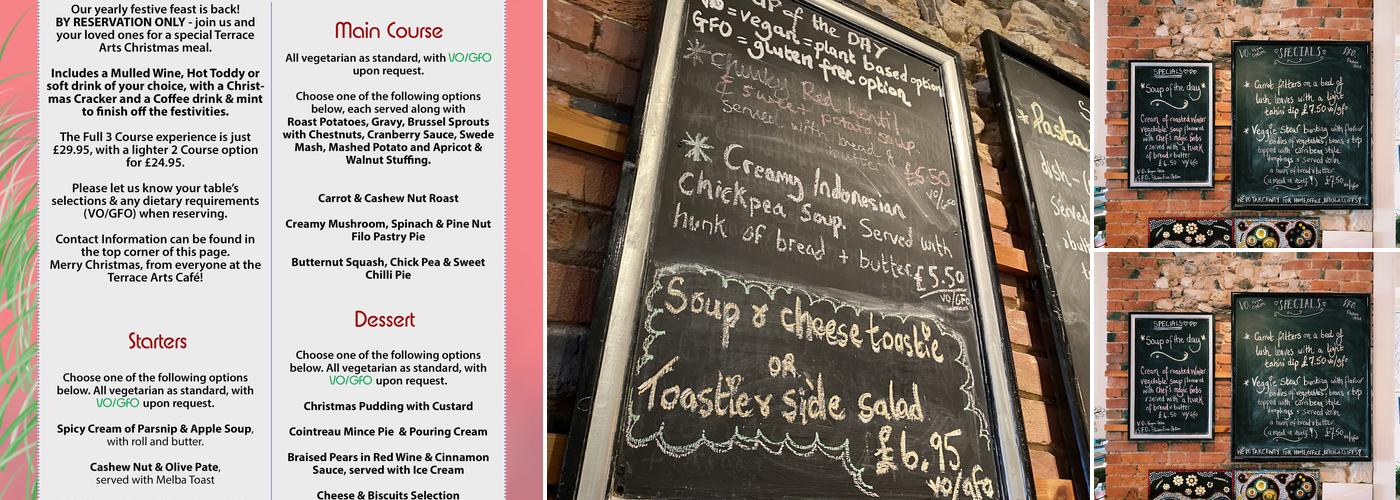 Our yearly festive feast is back!
BY RESERVATION ONLY - join us and
your loved ones for a special Terrace
Arts Christmas meal.
Includes a Mulled Wine, Hot Toddy or
soft drink of your choice, with a Christ-
mas Cracker and a Coffee drink & mint
to finish off the festivities.
The Full 3 Course experience is just
£29.95, with a lighter 2 Course option
for £24.95.
Please let us know your table's
selections & any dietary requirements
(VO/GFO) when reserving.
Contact Information can be found in
the top corner of this page.
Merry Christmas, from everyone at the
Terrace Arts Café!
Starters
Choose one of the following options
below. All vegetarian as standard, with
VO/GFO upon request.
Spicy Cream of Parsnip & Apple Soup,
with roll and butter.
Cashew Nut & Olive Pate,
served with Melba Toast
Main Course
All vegetarian as standard, with VO/GFO
upon request.
Choose one of the following options
below, each served along with
Roast Potatoes, Gravy, Brussel Sprouts
with Chestnuts, Cranberry Sauce, Swede
Mash, Mashed Potato and Apricot &
Walnut Stuffing.
Carrot & Cashew Nut Roast
Creamy Mushroom, Spinach & Pine Nut
Filo Pastry Pie
Butternut Squash, Chick Pea & Sweet
Chilli Pie
Dessert
Choose one of the following options
below. All vegetarian as standard, with
VO/GFO upon request.
Christmas Pudding with Custard
Cointreau Mince Pie & Pouring Cream
Braised Pears in Red Wine & Cinnamon
Sauce, served with Ice Cream
Cheese & Biscuits Selection
of the DAY
VO = vegan = plant based option
GFO = gluten free option
Chunky Red lentil
& sweet potato soup.
served with
bread &
butter £5.50
VO/GFO
Creamy Indonesian
Chickpea Soup. Served with
hunk of bread + butter £5.50
VO/GFO
Soup & cheese toastie
OR
Toastie & side salad
£6.95
VO/GFO
Pasta
dish
Served
SPECIALS
Soup of the day
Cream of roasted winter
vegetable soup flavoured
with Chef's magic herbs
& served with a hunk
of bread & butter
£6.50 VO/GFO
SPECIALS
Carrot fritters on a bed of
lush leaves with a light
tahini dip £7.50 vo/gfo
Veggie Stew bursting with flavour
oodles of vegetables, beans &
topped with
dumplings & served with
a hunk of bread & butter
(a meal in itself!) £7.50 vo/gfo
SPECIALS
Soup of the day
Cream of roasted winter
vegetable soup flavoured
with Chef's magic herbs
& served with a hunk
of bread & butter
£6.50 VO/GFO
SPECIALS
Carrot fritters on a bed of
lush leaves with a light
tahini dip £7.50 vo/gfo
Veggie Stew bursting with flavour
oodles of vegetables, beans &
topped with
dumplings & served with
a hunk of bread & butter
(a meal in itself!) £7.50 vo/gfo